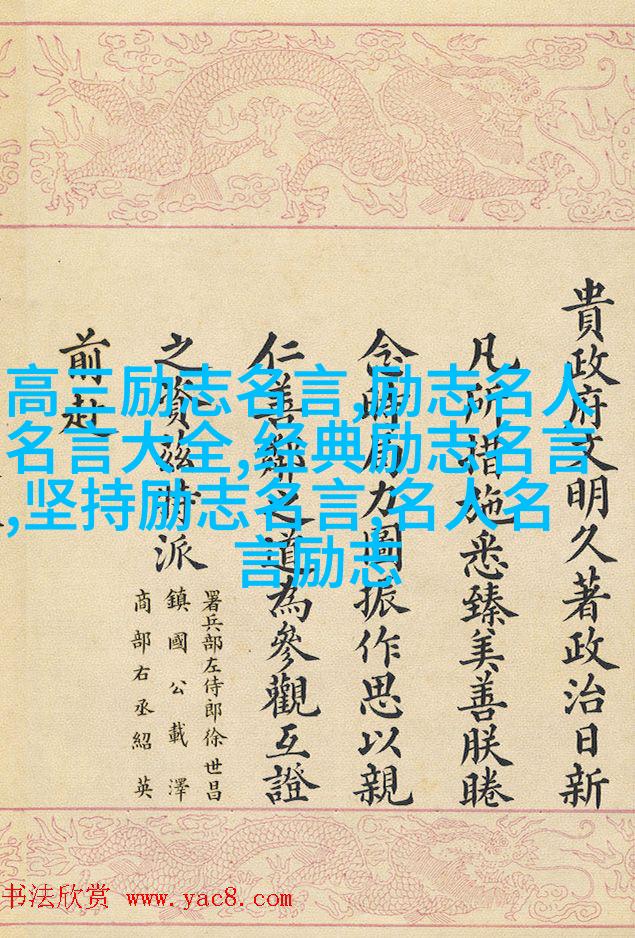 貴政府文明久著政治日新
凡所措施悉臻美善朕睠
念時局力圖振作思以親
仁善鄰之道為參觀互證
之資茲特派
署兵部左侍郎徐世昌
鎮國公載澤
商部右丞紹英
前赴
高二励志名言,励志名人
名言大全,经典励志名言
,坚持励志名言,名人名
言励志
书法欣赏 www.yac8.com